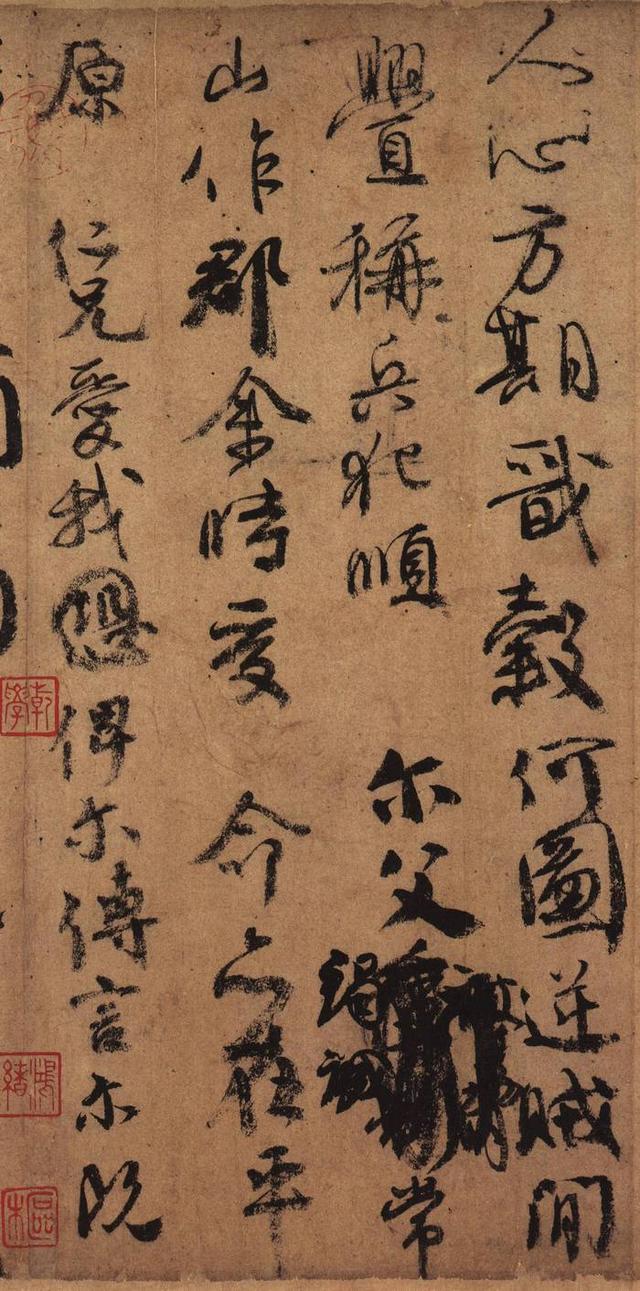 人心方期戩穀何圖逆賊閒
舋稱兵犯順 尔父竭誠常
山作郡余時受 命亦在平
原 仁兄愛我俾尔傳言尔既
乾學
鴻緒